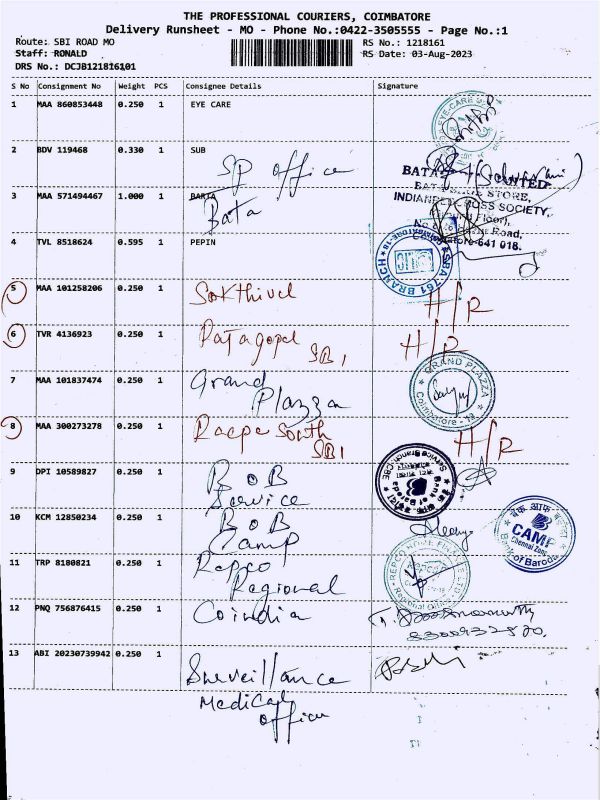 THE PROFESSIONAL COURIERS, COIMBATORE
Delivery Runsheet - MO - Phone No.:0422-3505555 - Page No.:1
Route: SBI ROAD MO RS No.: 1218161
Staff: RONALD RS Date: 03-Aug-2023
DRS No.: DCJB121816101
S No Consignment No Weight PCS Consignee Details Signature
1 MAA 860853448 0.250 1 EYE CARE
2 BDV 119468 0.330 1 SUB
SP office
3 MAA 571494467 1.000 1 BARTA
Bata
BATA LIMITED
BATA STORE,
INDIAN RED CROSS SOCIETY,
Road,
641 018.
4 TVL 8518624 0.595 1 PEPIN
SBA 761 BRANCH
COIMBATORE-18
5 MAA 101258206 0.250 1 Sakthivel H/R
6 TVR 4136923 0.250 1 Rajagopal H/R
SB1
7 MAA 101837474 0.250 1 Grand
Plazza
GRAND PLAZZA
Coimbatore - 18
8 MAA 300273278 0.250 1 H/R
SB1
9 DPI 10589827 0.250 1 BOB
Service
Service Branch-CBE
Bank of Baroda
10 KCM 12850234 0.250 1 BOB
Camp
बैंक ऑफ़ बड़ौदा
CAMP
Chennai Zone
Bank of Baroda
11 TRP 8180821 0.250 1 Repco
Regional
REPCO HOME FINANCE LTD
Regional Office
12 PNQ 756876415 0.250 1 Coindia
13 ABI 20230739942 0.250 1
Surveillance
Medical
officer